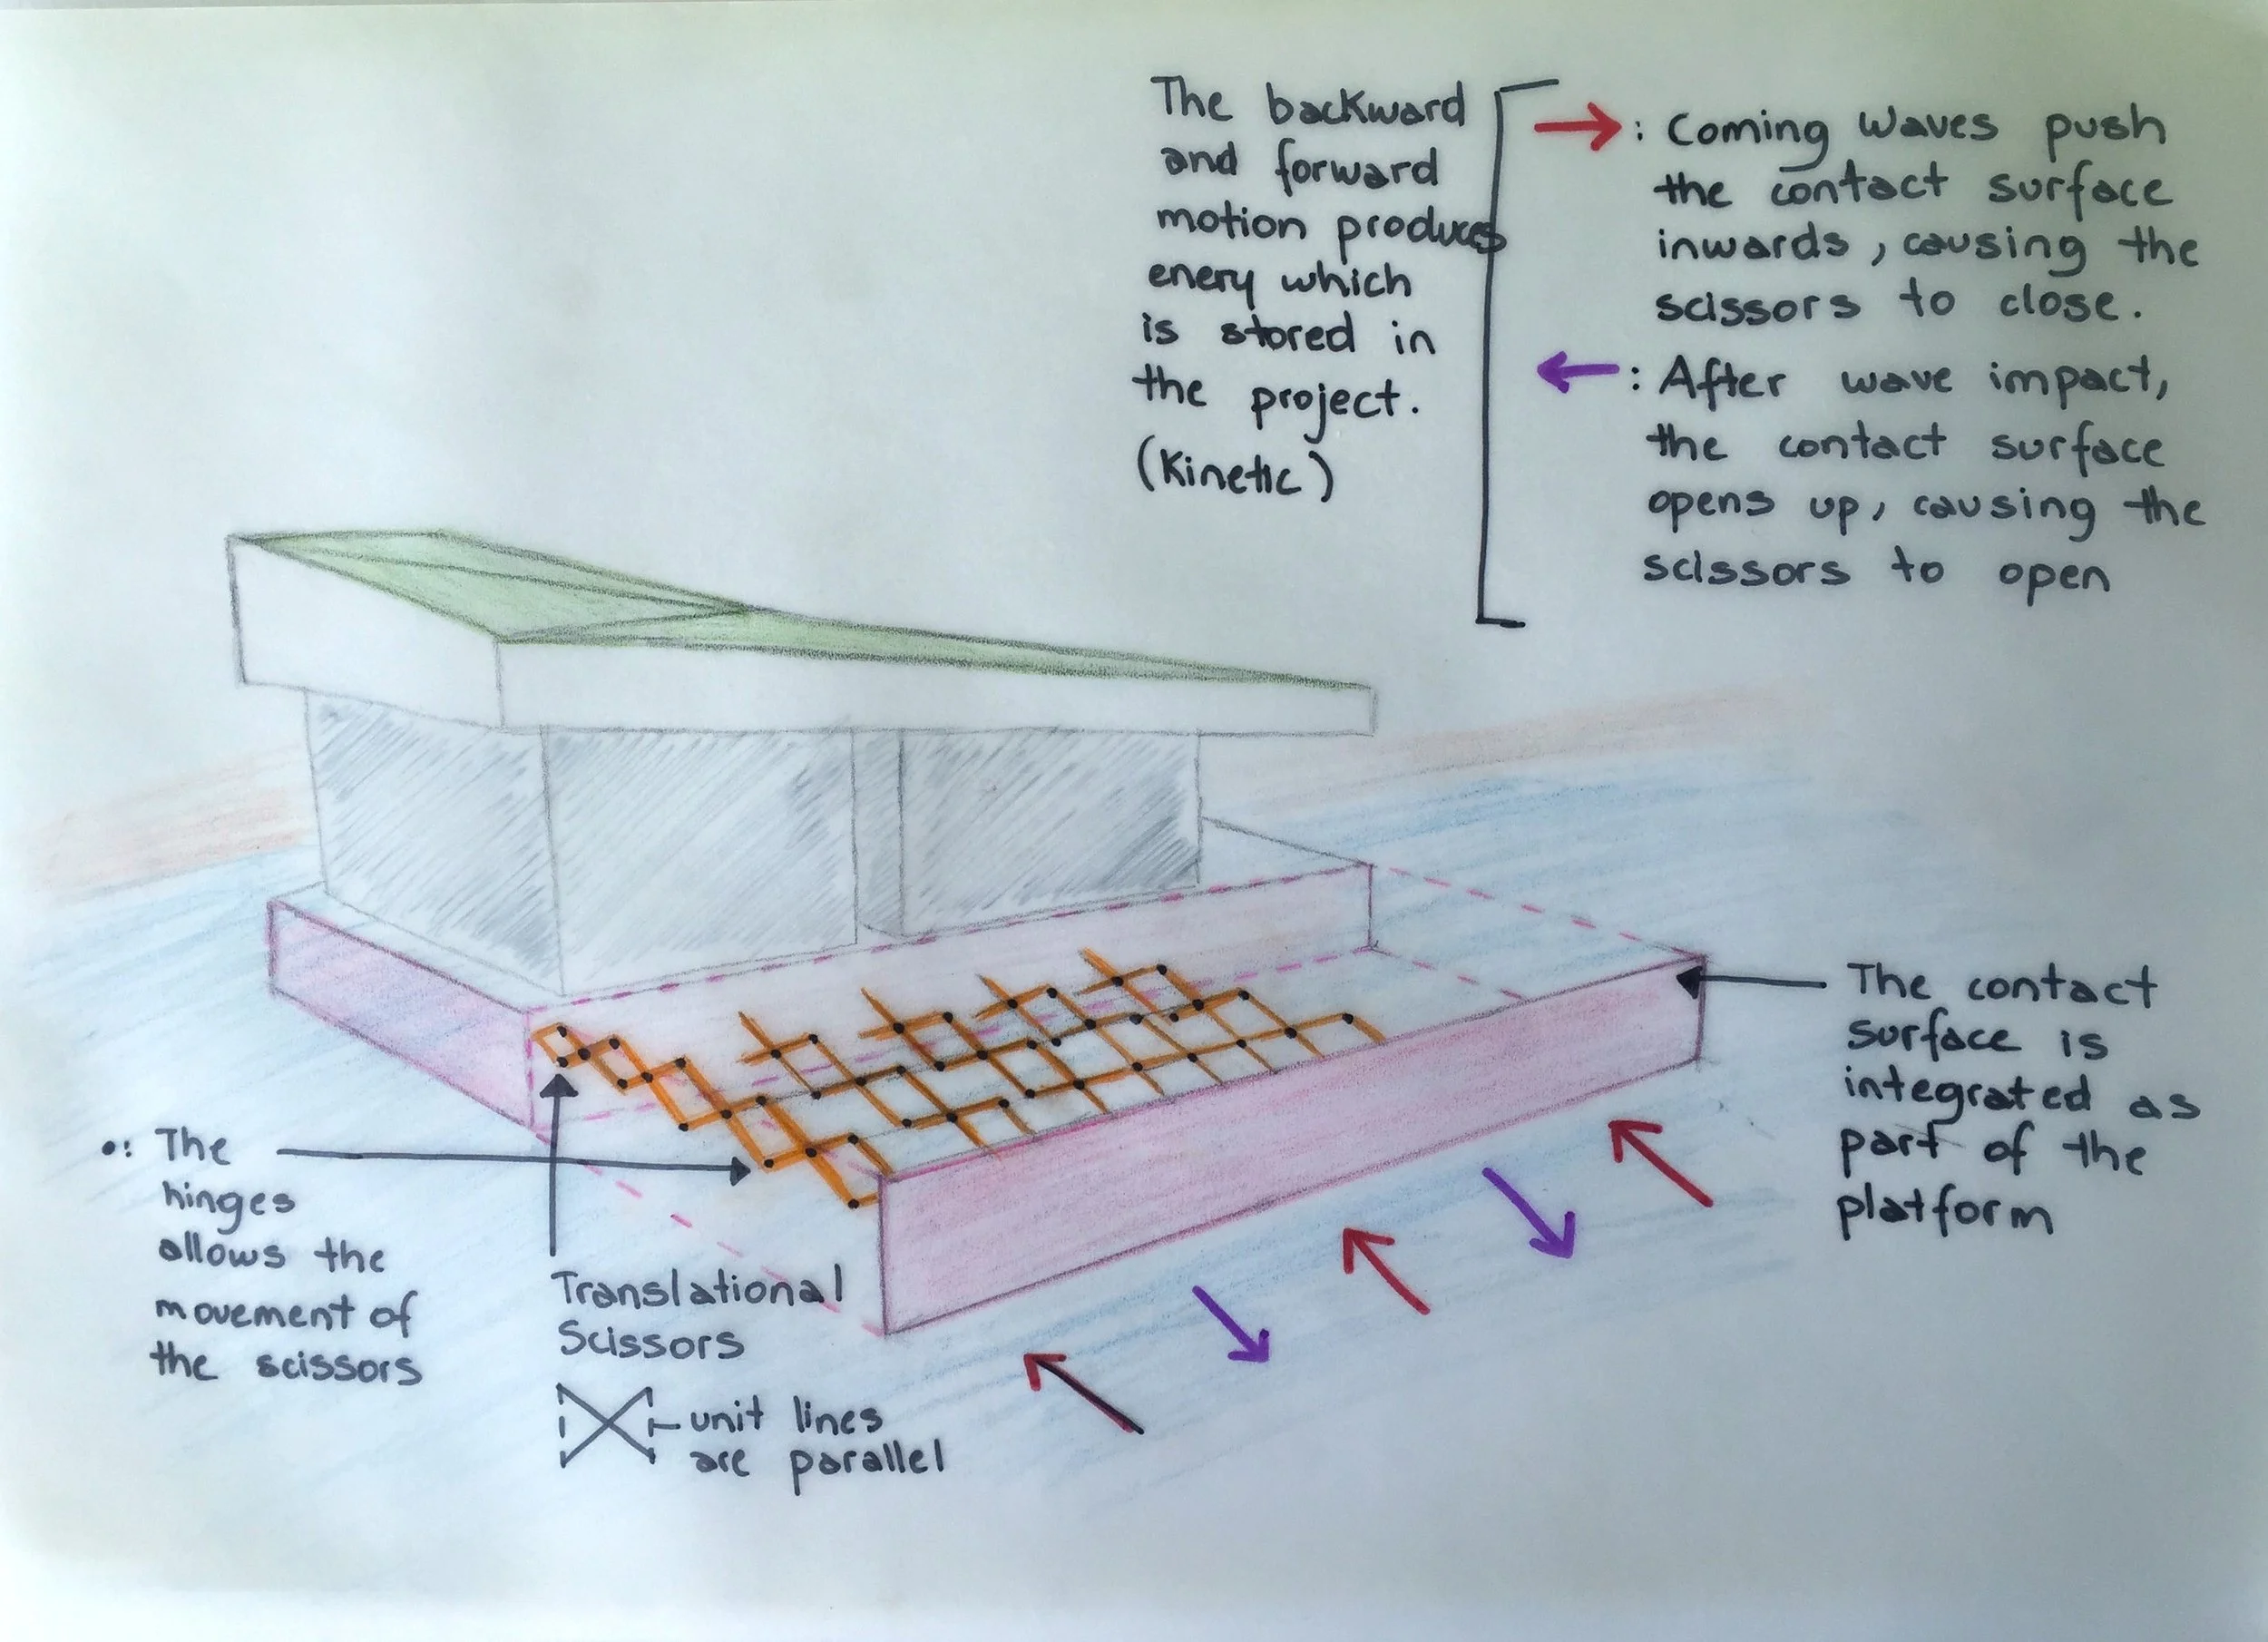 The backward
and forward
motion produces
enery which
is stored in
the project.
(Kinetic)
: Coming waves push
the contact surface
inwards, causing the
scissors to close.
: After wave impact,
the contact surface
opens up, causing the
scissors to open
The contact
surface is
integrated as
part of the
platform
•: The
hinges
allows the
movement of
the scissors
Translational
Scissors
unit lines
are parallel